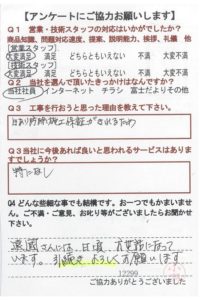 【アンケートにご協力お願いします】
Q1 営業・技術スタッフの対応はいかがでしたか?
商品知識、問題対応速度、提案、説明能力、挨拶、礼儀 他
【営業スタッフ】
大変満足 満足 どちらともいえない 不満 大変不満
【技術スタッフ】
大変満足 満足 どちらともいえない 不満 大変不満
Q2 当社を選んで頂いたきっかけはなんですか?
当社社員 インターネット チラシ 富士だよりその他
Q3 工事を行おうと思った理由を教えて下さい。
Q3当社に今後あれば良いと思われるサービスはありますでしょうか?
特になし
Q4 どんな些細な事でも結構です。お一つでもかまいません。ご不満・ご意見、お叱り等がございましたらお聞かせ下さい。
さんには、日頃、お世話になって
います。引続きよろしくお願いします
12299
ご協力ありがとうございました